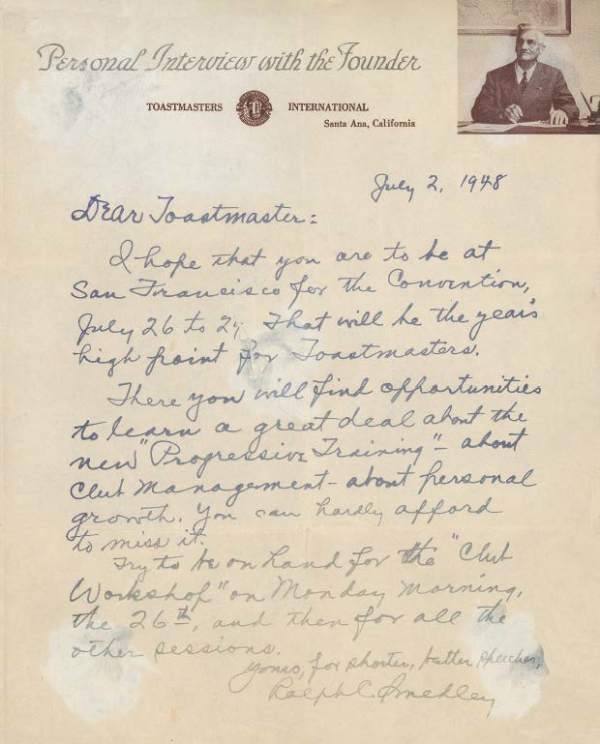 Personal Interview with the Founder
TOASTMASTERS INTERNATIONAL
Santa Ana, California
July 2, 1948
Dear Toastmaster:
I hope that you are to be at
San Francisco for the Convention,
July 26 to 29. That will be the year's
high point for Toastmasters.
There you will find opportunities
to learn a great deal about the
new "Progressive Training" - about
Club Management - about personal
growth. You can hardly afford
to miss it.
Try to be on hand for the "Club
Workshop" on Monday morning,
the 26th, and then for all the
other sessions.
Yours, for shorter, better speeches,
Ralph C. Smedley